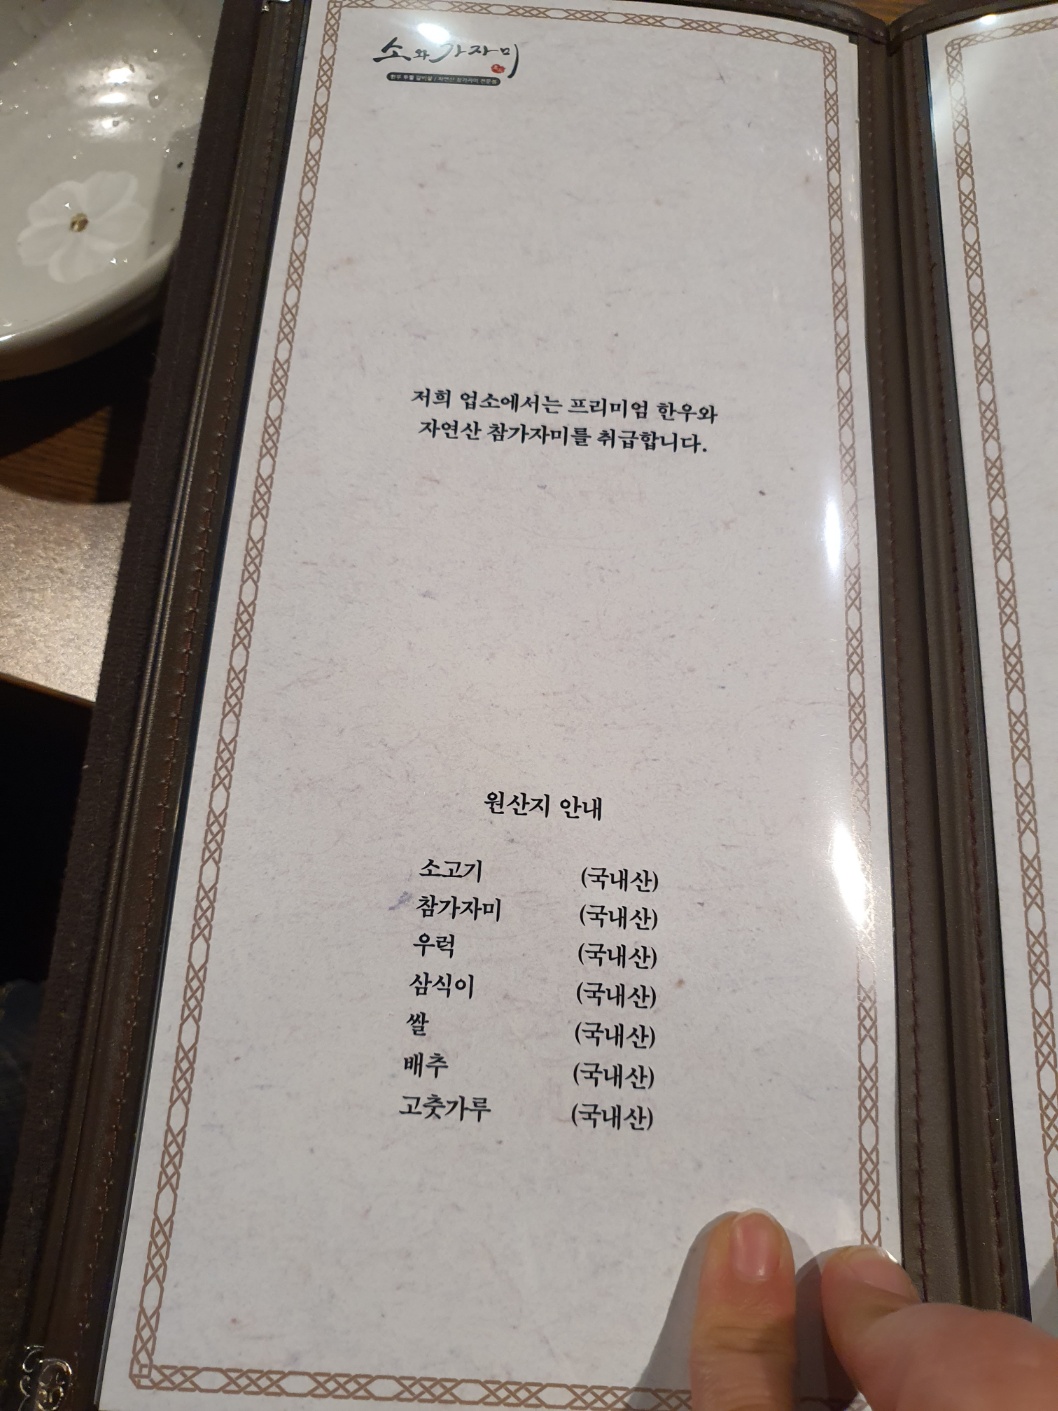 소와가자미
저희 업소에서는 프리미엄 한우와
자연산 참가자미를 취급합니다.
원산지 안내
소고기 (국내산)
참가자미 (국내산)
우럭 (국내산)
삼식이 (국내산)
쌀 (국내산)
배추 (국내산)
고춧가루 (국내산)